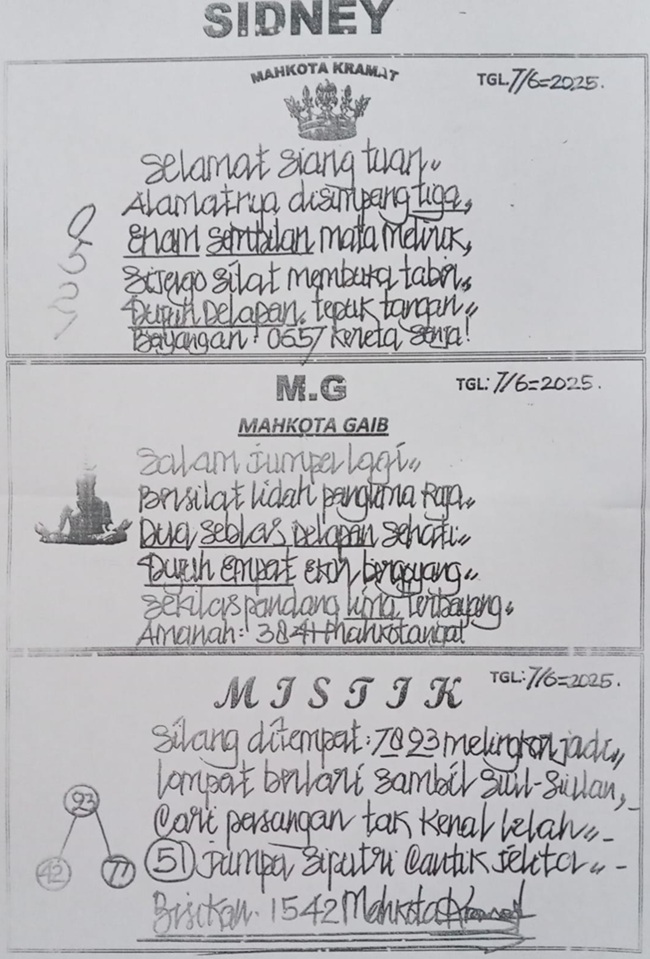 SIDNEY
MAHKOTA KRAMAT
TGL. 7/6=2025.
Selamat Siang tuan,,
Alamatnya disimpang tiga,
Enam Sembilan mata melirik,
silat membuka tabir,
Tujuh Delapan. tepuk tangan,,
Bayangan! 0657 Kereta Senja!
M.G
TGL: 7/6=2025.
MAHKOTA GAIB
Salam Jumpa laggi,,
Bersilat lidah panglima Raja,,
Dua Seblas Delapan Sehati,,
Tujuh Empat Ekor bergoyang,,
Sekilas pandang lima Terbayang,
Amanah: 3841
MISTIK
TGL: 7/6=2025.
Silang ditempat: 7893 jadi,,
lompat berlari sambil
Cari pasangan tak Kenal lelah,,-
93
42
77
51 Jumpa Siputri Cantik Jelita,,-
Bisikan. 1542 Mahkota